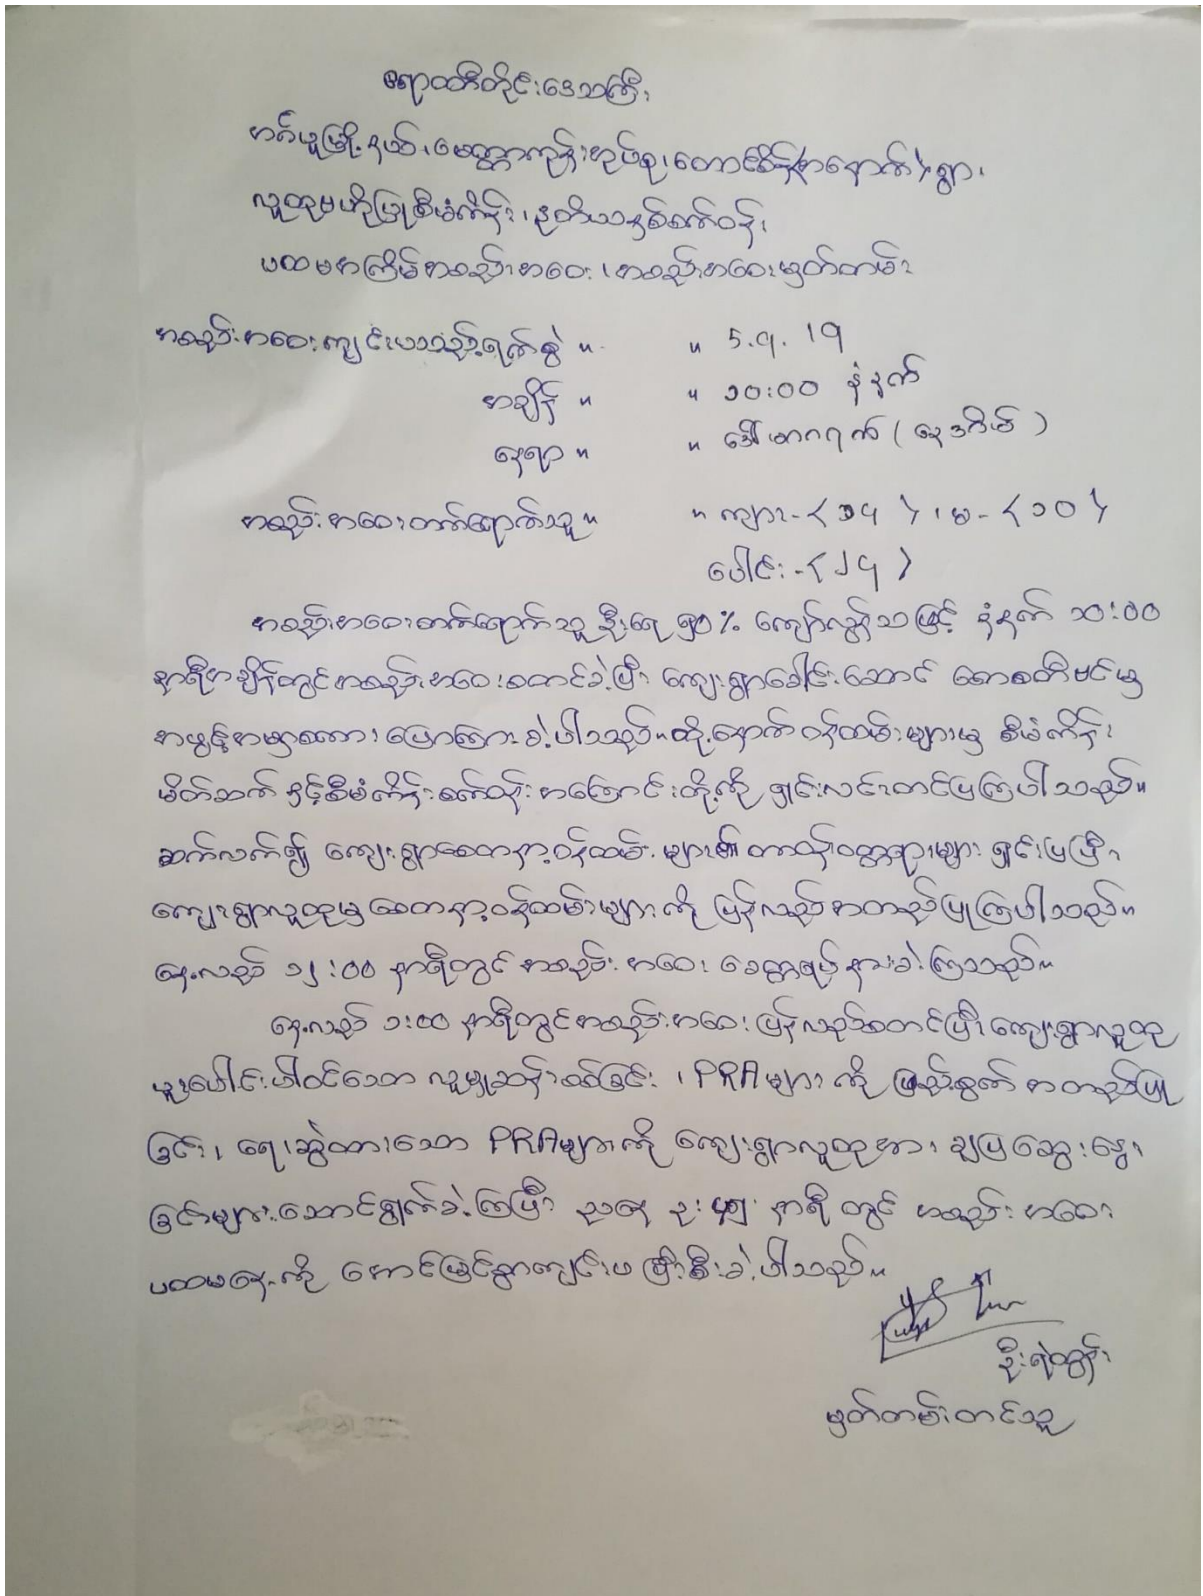 ဧရာဝတီတိုင်းဒေသကြီး
ဟင်္သာမြို့နယ်၊ မေတ္တာကုန်းအုပ်စု၊ တောင်စိန်(အနောက်)ရွာ၊
လူထုဗဟိုပြုစီမံကိန်း၊ ဒုတိယနှစ်စက်ဝန်း
ပထမအကြိမ်အစည်းအဝေး၊ အစည်းအဝေးမှတ်တမ်း
အစည်းအဝေးကျင်းပသည့်ရက်စွဲ ။ ။ 5.9.19
အချိန် ။ ။ ၁၀:၀၀ နံနက်
နေရာ ။ ။ ဒေါ်မာဂရက် (နေအိမ်)
အစည်းအဝေးတက်ရောက်သူ ။ ။ ကျား-〈၁၄〉၊ မ-〈၁၀〉
ပေါင်း-〈၂၄〉
အစည်းအဝေးတက်ရောက်သူ ဦးရေ ၅၀% ကျော်လွန်သဖြင့် နံနက် ၁၀:၀၀
နာရီအချိန်တွင်အစည်းအဝေးစတင်ခဲ့ပြီး ကျေးရွာခေါင်းဆောင် စောစတီဗင်မှ
အဖွင့်အမှာစကား ပြောကြားခဲ့ပါသည်။ ထို့နောက်ဝန်ထမ်းများမှ စီမံကိန်း
မိတ်ဆက်နှင့်စီမံကိန်းစက်ဝန်းအကြောင်းတို့ကို ရှင်းလင်းတင်ပြကြပါသည်။
ဆက်လက်၍ ကျေးရွာစေတနာ့ဝန်ထမ်းများ၏ တာဝန်ဝတ္တရားများ ရှင်းပြပြီး
ကျေးရွာလူထုမှစေတနာ့ဝန်ထမ်းများကို ပြန်လည်အတည်ပြုကြပါသည်။
နေ့လည် ၁၂:၀၀ နာရီတွင် အစည်းအဝေး ခေတ္တရပ်နားခဲ့ကြသည်။
နေ့လည် ၁:၀၀ နာရီတွင်အစည်းအဝေးပြန်လည်စတင်ပြီး ကျေးရွာလူထု
ပူးပေါင်းပါဝင်သော လူမှုဆန်းစစ်ခြင်း၊ PRA များကို ဖြည့်စွက် အတည်ပြု
ခြင်း၊ ရေးဆွဲထားသော PRA များကို ကျေးရွာလူထုအား ချပြဆွေးနွေး
ခြင်းများဆောင်ရွက်ခဲ့ကြပြီး ညနေ နာရီတွင် အစည်းအဝေး
ပထမနေ့ကို အောင်မြင်စွာကျင်းပ ပြီးစီးခဲ့ပါသည်။
ဦးရဲထွန်း
မှတ်တမ်းတင်သူ